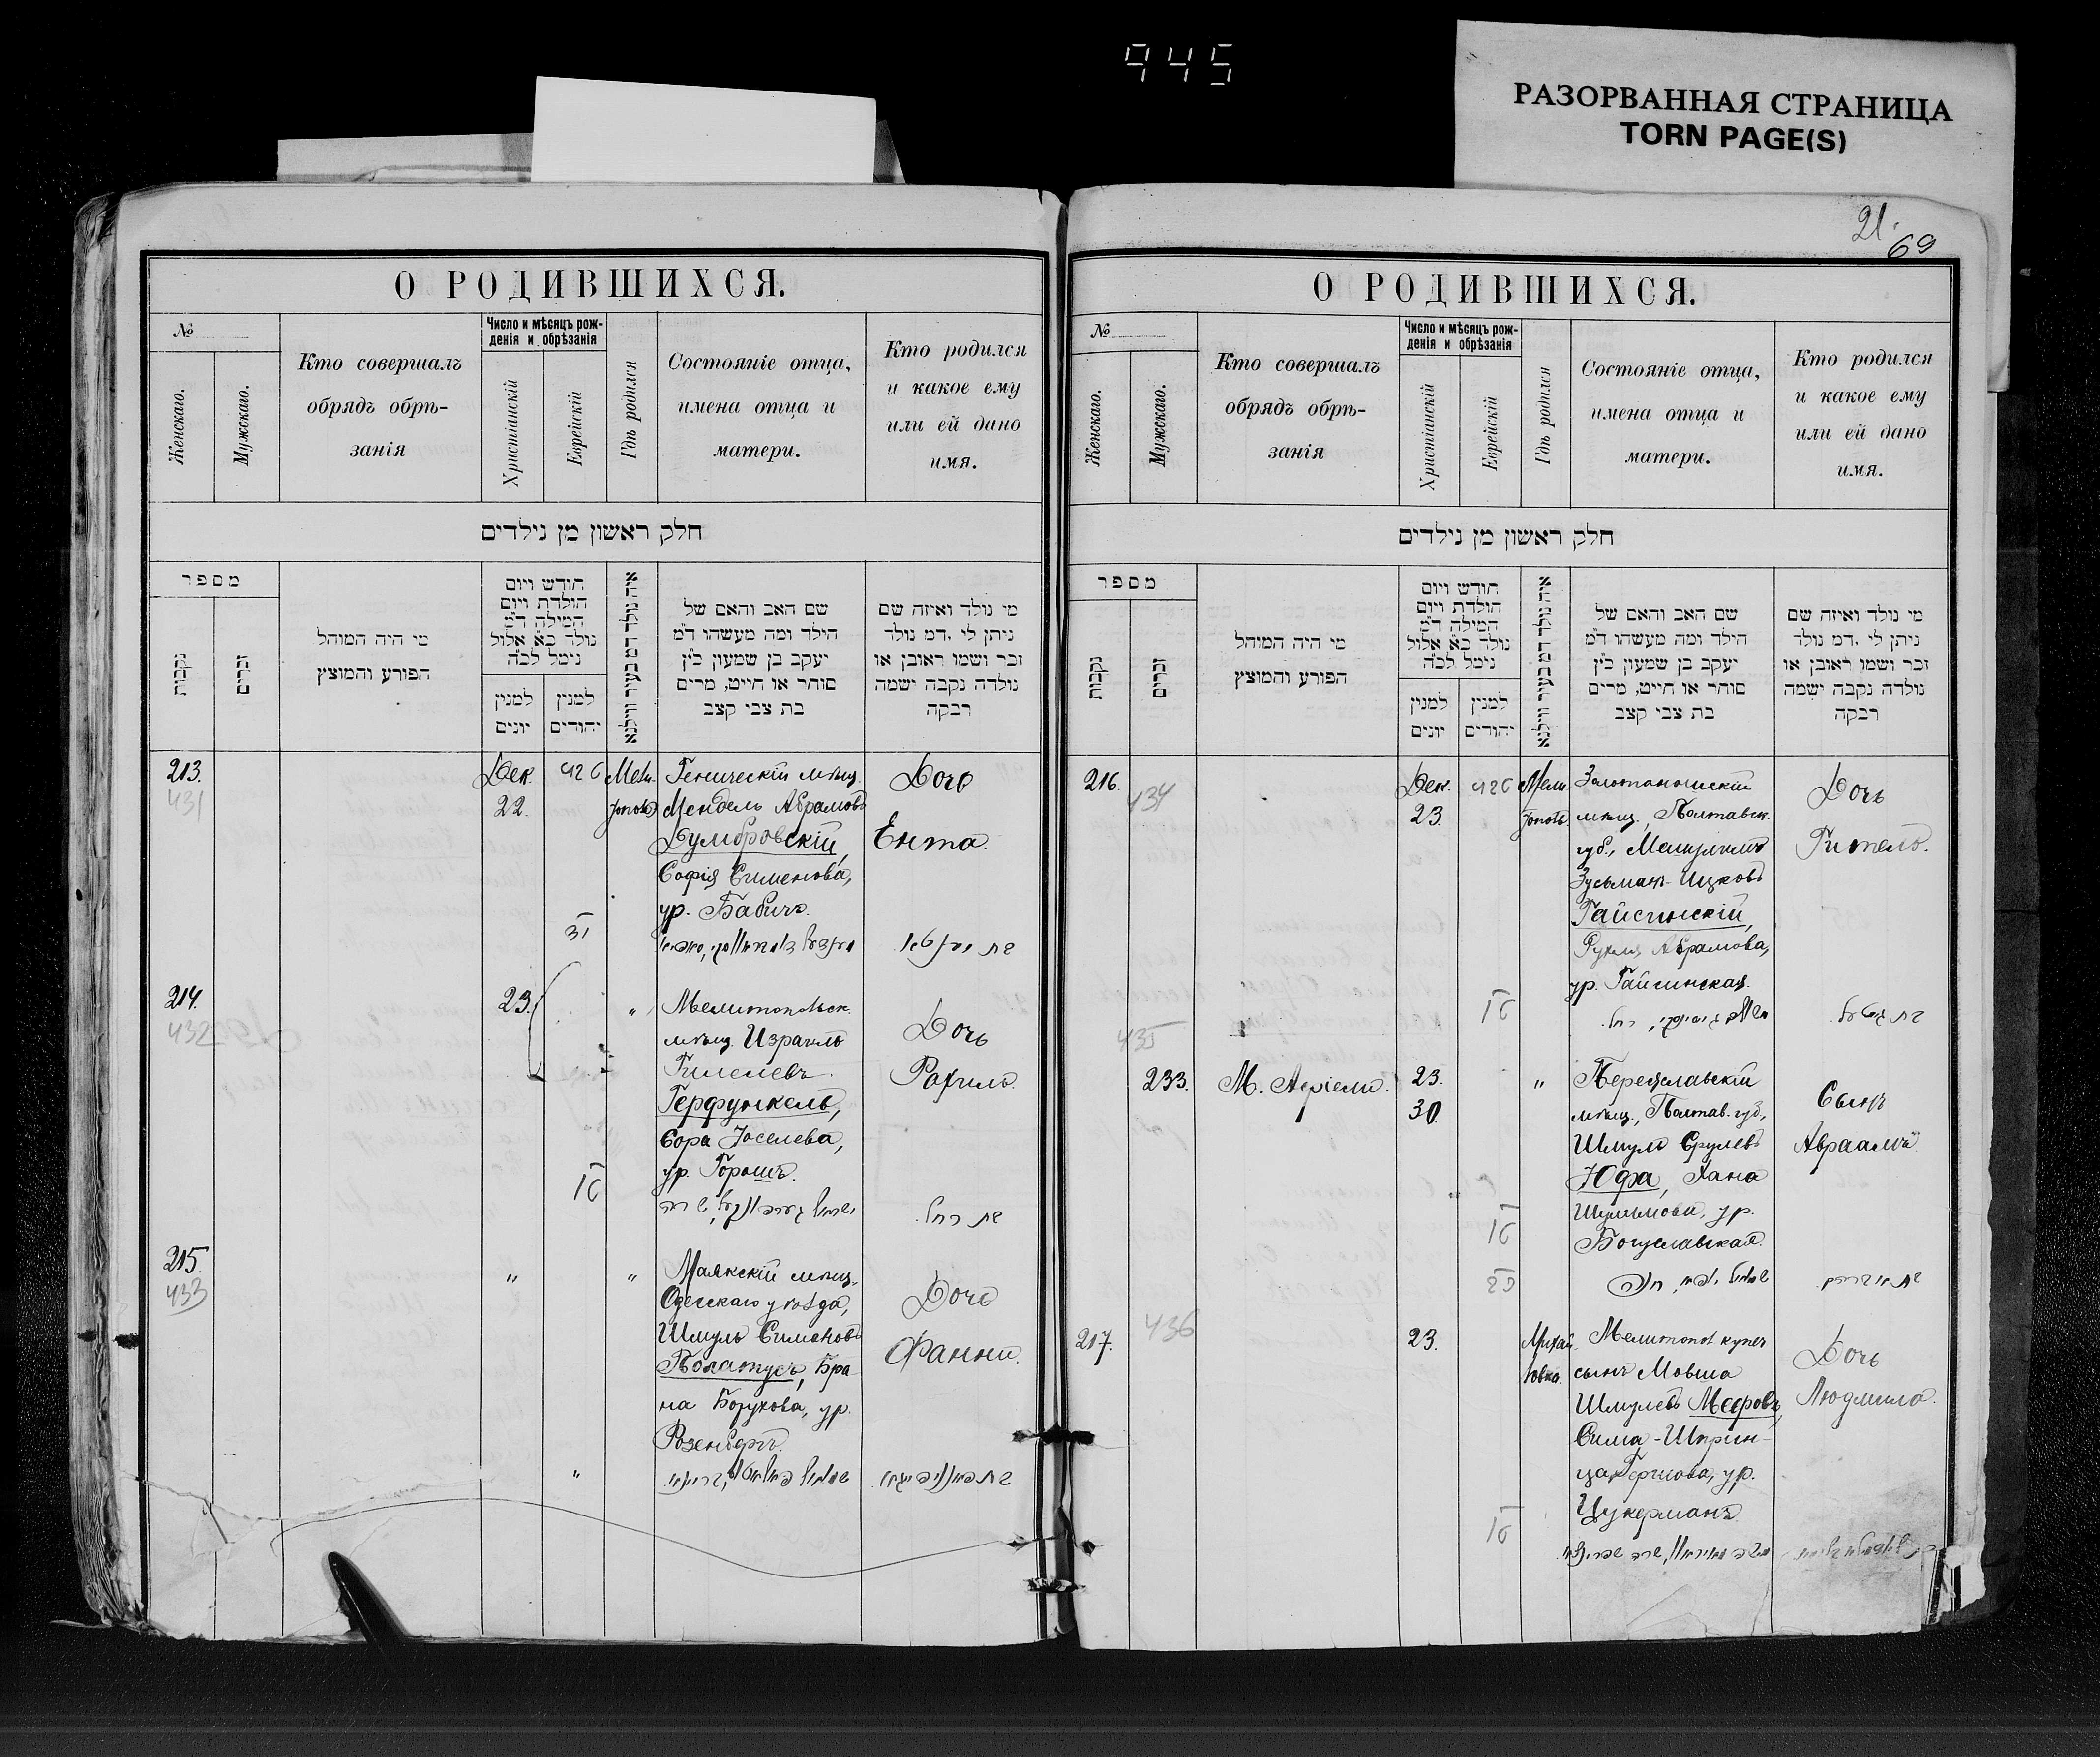 945
РАЗОРВАННАЯ СТРАНИЦА
TORN PAGE(S)
О РОДИВШИХСЯ.
№
Женскаго.
Мужскаго.
Кто совершалъ
обрядъ обрѣ-
занія
Число и мѣсяцъ рож-
денія и обрѣзанія
Христіанскій
Еврейскій
Гдѣ родился
Состояніе отца,
имена отца и
матери.
Кто родился
и какое ему
или ей дано
имя.
חלק ראשון מן נילדים
מספר
נקבות
זכרים
מי היה המוהל
הפורע והמוצץ
חודש ויום
הולדת ויום
המילה ד״מ
נולד כ״א אלול
נימל לכ״ה
למנין
יונים
למנין
יהודים
שם האב והאם של
הילד ומה מעשהו ד״מ
יעקב בן שמעון כ״ץ
סוחר או חייט, מרים
בת צבי קצב
מי נולד ואיזה שם
ניתן לי .דמ נולד
זכר ושמו ראובן או
נולדה נקבה ישמה
רבקה
213.
431
Дек.
22.
Мели
тополь
Геническій мѣщ.
Мендель Абрамовъ
Думбровскій,
Софія Сименова,
ур. Бабичъ.
Дочь
Ента.
214.
432
23.
"
Мелитопольск.
мѣщ. Израиль
Гилелевъ
Герфункель,
Сора Іоселева,
ур. Горошъ.
Дочь
Рахиль.
215.
433
"
"
Маякскій мѣщ.
Одесскаго уѣзда,
Шмуль Симоновъ
Полатусъ, Бра-
на Борухова, ур.
Розенбергъ.
Дочь
Фанни.
"
21.
69
О РОДИВШИХСЯ.
№
Женскаго.
Мужскаго.
Кто совершалъ
обрядъ обрѣ-
занія
Число и мѣсяцъ рож-
денія и обрѣзанія
Христіанскій
Еврейскій
Гдѣ родился
Состояніе отца,
имена отца и
матери.
Кто родился
и какое ему
или ей дано
имя.
חלק ראשון מן נילדים
מספר
נקבות
זכרים
מי היה המוהל
הפורע והמוצץ
חודש ויום
הולדת ויום
המילה ד״מ
נולד כ״א אלול
נימל לכ״ה
למנין
יונים
למנין
יהודים
שם האב והאם של
הילד ומה מעשהו ד״מ
יעקב בן שמעון כ״ץ
סוחר או חייט, מרים
בת צבי קצב
מי נולד ואיזה שם
ניתן לי .דמ נולד
זכר ושמו ראובן או
נולדה נקבה ישמה
רבקה
216.
434
Дек.
23.
Мели
тополь
Золотоношскій
мѣщ., Полтавск.
губ.,
Зусьман-Ицковъ
Гайсинскій,
Рухля Абрамова,
ур. Гайсинская.
Дочь
Гитель.
435
233.
23.
30.
"
Переяславскій
мѣщ., Полтав. губ.,
Шмуль Срулевъ
Юфа, Хана
Шулимова, ур.
Богуславская.
Сынъ
Авраамъ.
217.
436
23.
Михай
ловка.
Мелитопол купеч.
сынъ Мовша
Шмулевъ Мееровъ,
Сима-Шприн-
ца Гершова, ур.
Цукерманъ.
Дочь
Людмила.